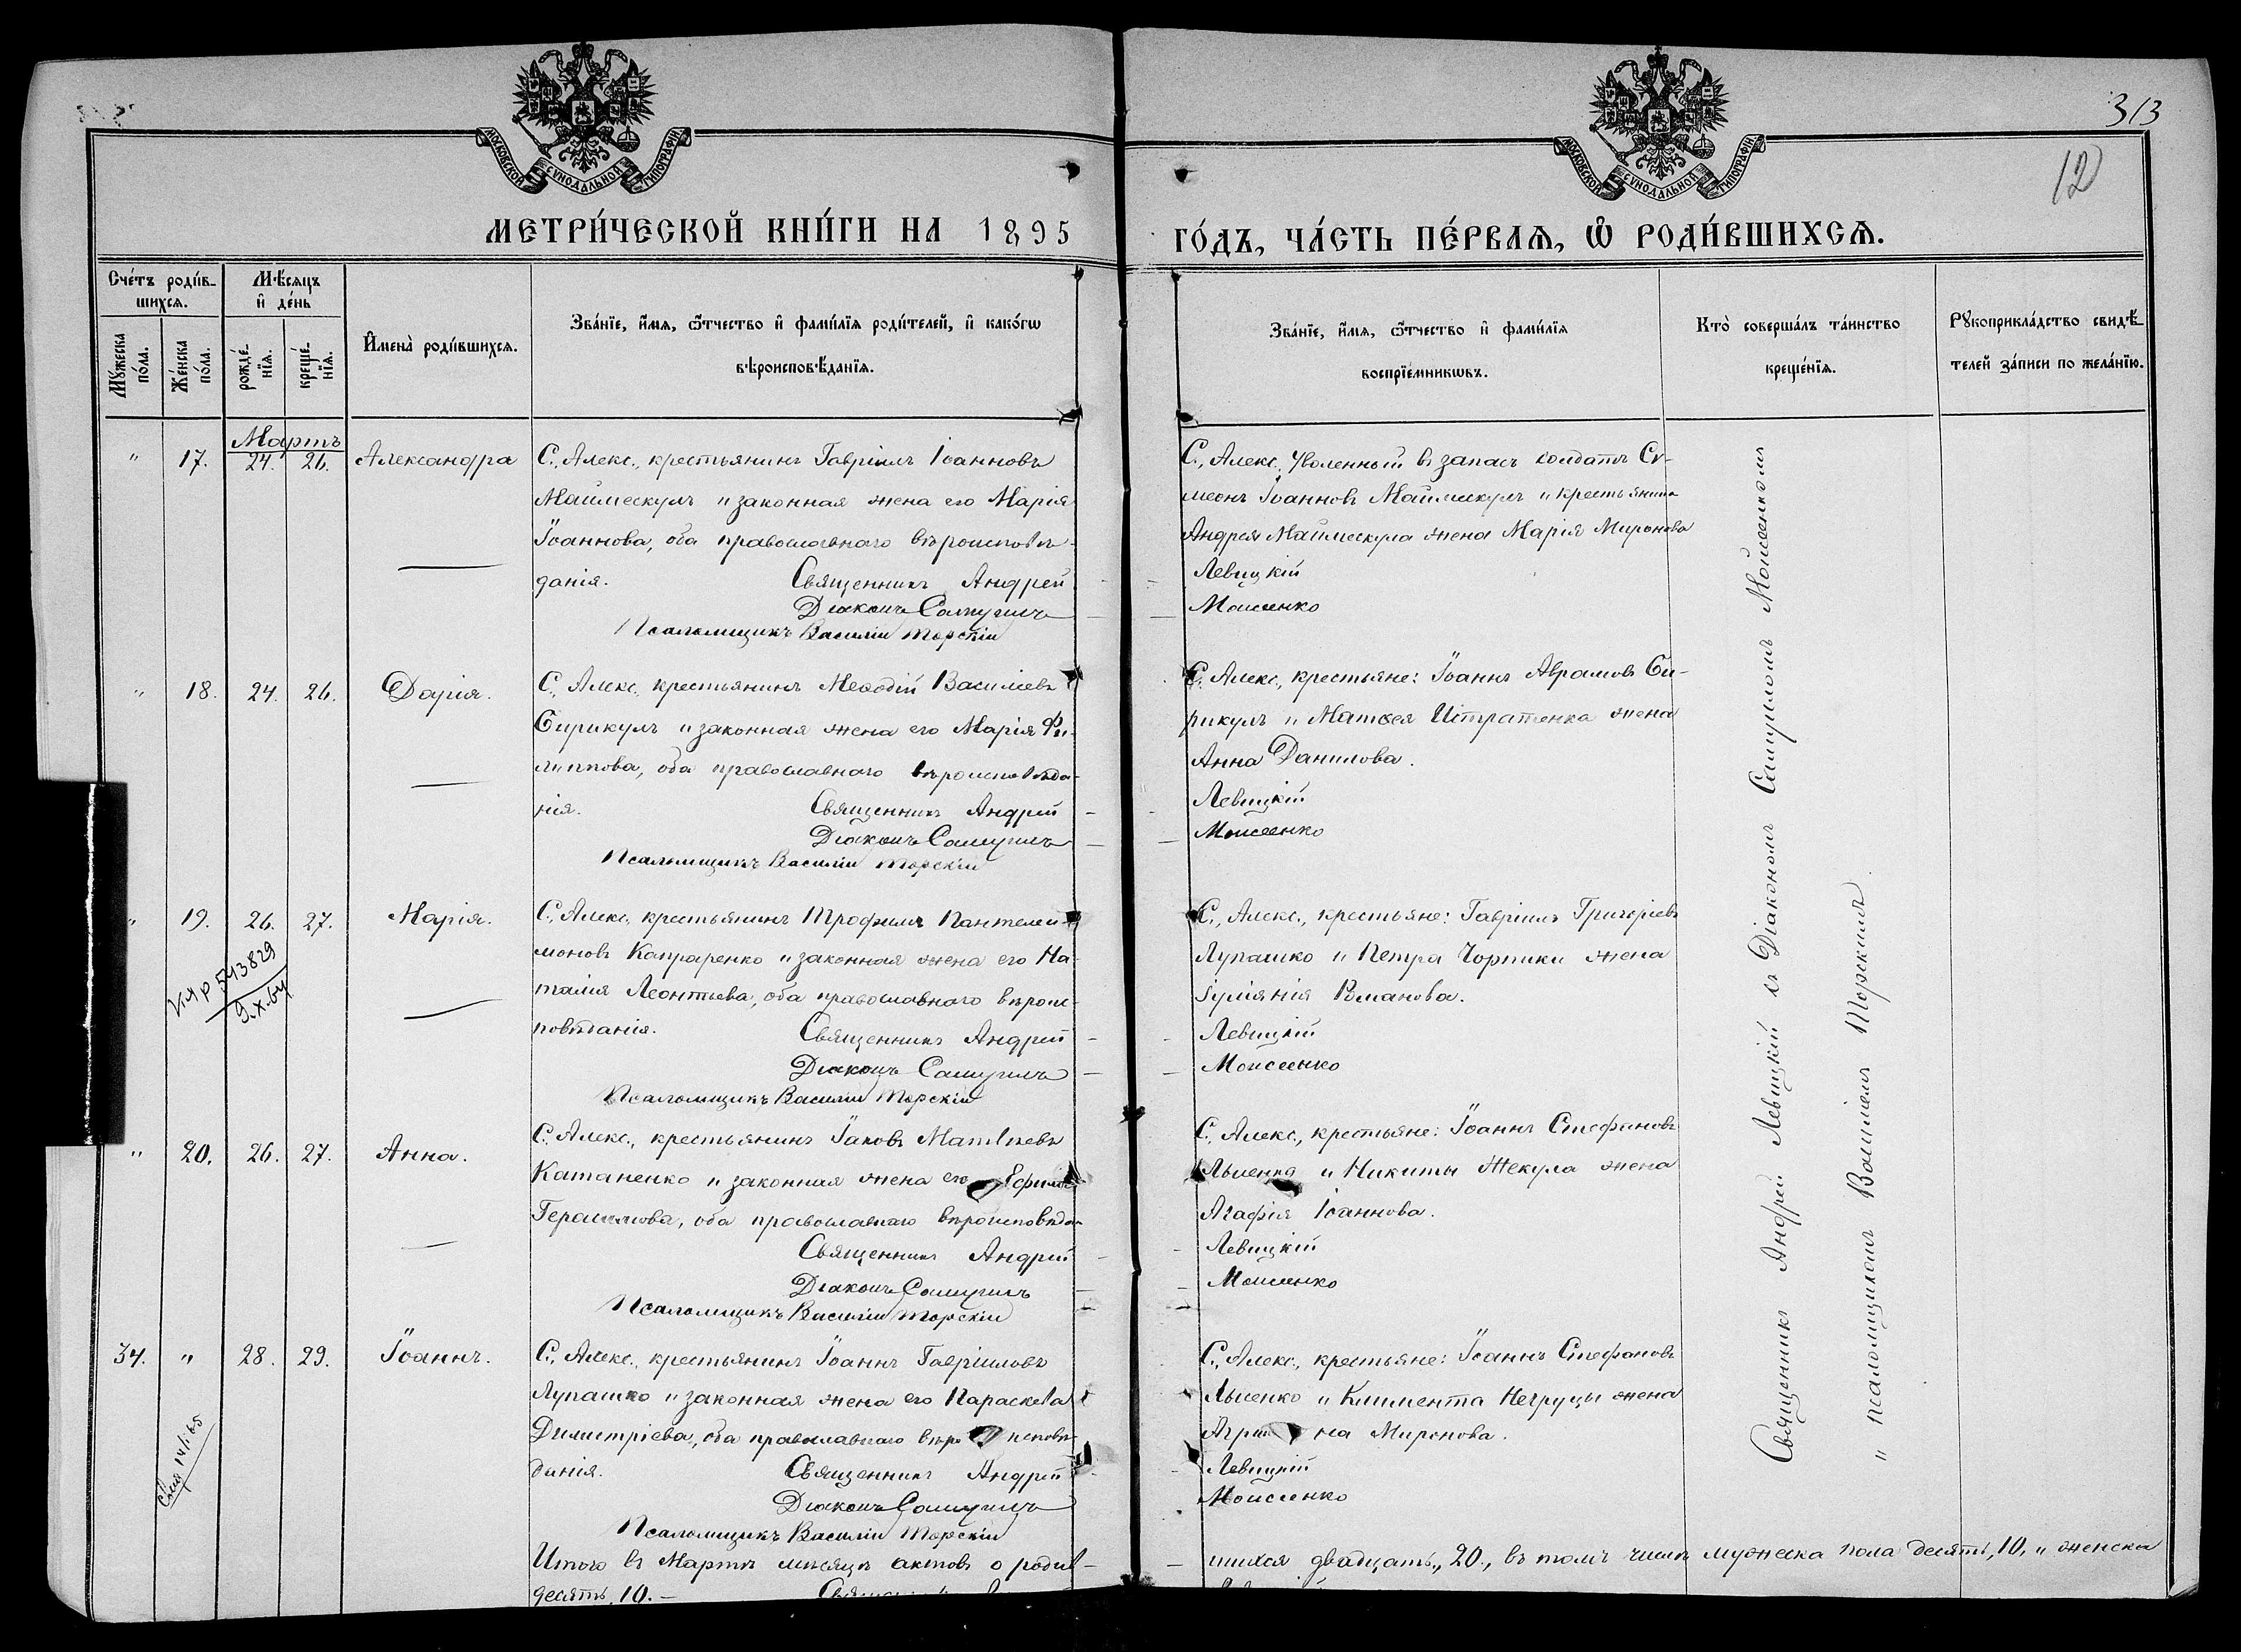 313
12
МОСКОВСКОЙ СУНОДАЛЬНОЙ ТИПОГРАФІИ
МОСКОВСКОЙ СУНОДАЛЬНОЙ ТИПОГРАФІИ
МЕТРИ́ЧЕСКОЙ КНИ́ГИ НА 1895
ГО́ДЪ, ЧА́СТЬ ПЕ́РВАЯ, Ѽ РОДИ́ВШИХСЯ.
Сче́тъ роди́в-
шихся.
Мѣ́сяцъ
и҆ де́нь
Мꙋ́жеска
по́ла.
Же́нска
по́ла.
рожде́-
нїя.
креще́-
нїя.
И҆мена̀ роди́вшихся.
Зва́нїе, и҆́мя, ѻ҆́тчество и҆ фами́лїя роди́телей, и҆ како́гѡ
вѣроисповѣ́данїя.
Зва́нїе, и҆́мя, ѻ҆́тчество и҆ фами́лїя
воспрїе́мникѡвъ.
Кто̀ соверша́лъ та́инство
креще́нїя.
Рꙋкоприкла́дство свидѣ́-
телей за́писи по жела́нїю.
Мартъ
" 17. 24. 26. Александра
С., Алекс., крестьянинъ Гавріилъ Іоанновъ
Маймескулъ и законная жена его Марія
Іоаннова, оба православнаго вѣроисповѣ-
данія. Священникъ Андрей
Діаконъ Самуилъ
Псаломщикъ Василій Торскій
С., Алекс., Уволенный въ запасъ солдатъ Си-
меонъ Іоанновъ Маймескулъ и крестьянина
Андрея Маймескула жена Марія Миронова
Левицкій
Моисеенко
" 18. 24. 26. Дарія.
С., Алекс., крестьянинъ Меѳодій Василіевъ
Бирикулъ и законная жена его Марія Фи-
липпова, оба православнаго вѣроисповѣда-
нія. Священникъ Андрей
Діаконъ Самуилъ
Псаломщикъ Василій Торскій
С. Алекс., крестьяне: Іоаннъ Аврамовъ Би-
рикулъ и Матѳея Истратенка жена
Анна Данилова.
Левицкій
Моисеенко
" 19. 26. 27. Марія.
543829
С., Алекс., крестьянинъ Трофимъ Пантелеи-
моновъ Капраренко и законная жена его На-
талія Леонтьева, оба православнаго вѣроис-
повѣданія. Священникъ Андрей
Діаконъ Самуилъ
Псаломщикъ Василій Торскій
С., Алекс., крестьяне: Гавріилъ Григоріевъ
Лупашко и Петра Чорпики жена
Іуліянія Романова.
Левицкій
Моисеенко
" 20. 26. 27. Анна.
С. Алекс., крестьянинъ Іаковъ Матѳѣевъ
Катаненко и законная жена его
Герасимова, оба православнаго вѣроисповѣда-
Священникъ Андрей
Діаконъ Самуилъ
Псаломщикъ Василій Торскій
С., Алекс., крестьяне: Іоаннъ Стефановъ
Лысенко и Никиты Жекула жена
Агафія Іоаннова.
Левицкій
Моисеенко
34. " 28. 29. Іоаннъ.
С., Алекс., крестьянинъ Іоаннъ Гавріиловъ
Лупашко и законная жена его Параскева
Димитріева, оба православнаго вѣро исповѣ-
данія. Священникъ Андрей
Діаконъ Самуилъ
Псаломщикъ Василій Торскій
С., Алекс., крестьяне: Іоаннъ Стефановъ
Лысенко и Климента Негруцы жена
Агрип на Миронова.
Левицкій
Моисеенко
Священникъ Андрей Левицкій съ Діакономъ Самуиломъ Моисеенкомъ
и псаломщикомъ Василіемъ Торскимъ
Итого въ Мартѣ мѣсяцѣ актовъ о родив-
шихся двадцать, 20., въ томъ числѣ мужеска пола десять, 10, и женска
десять, 10. —